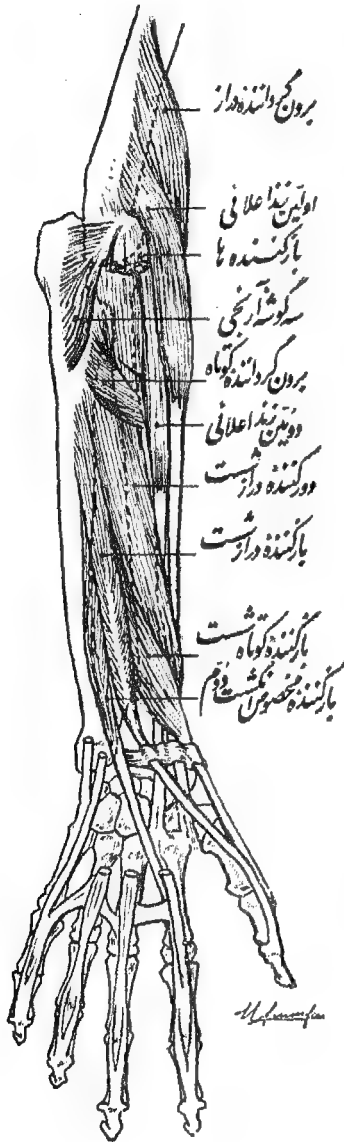 برون گرداننده دراز
اولین زند اعلائی
باز کننده ها
سه گوشه آرنجی
برون گرداننده کوتاه
دومین زند اعلائی
دور کننده دراز شست
باز کننده دراز شست
باز کننده کوتاه شست
باز کننده مخصوص انگشت دوم